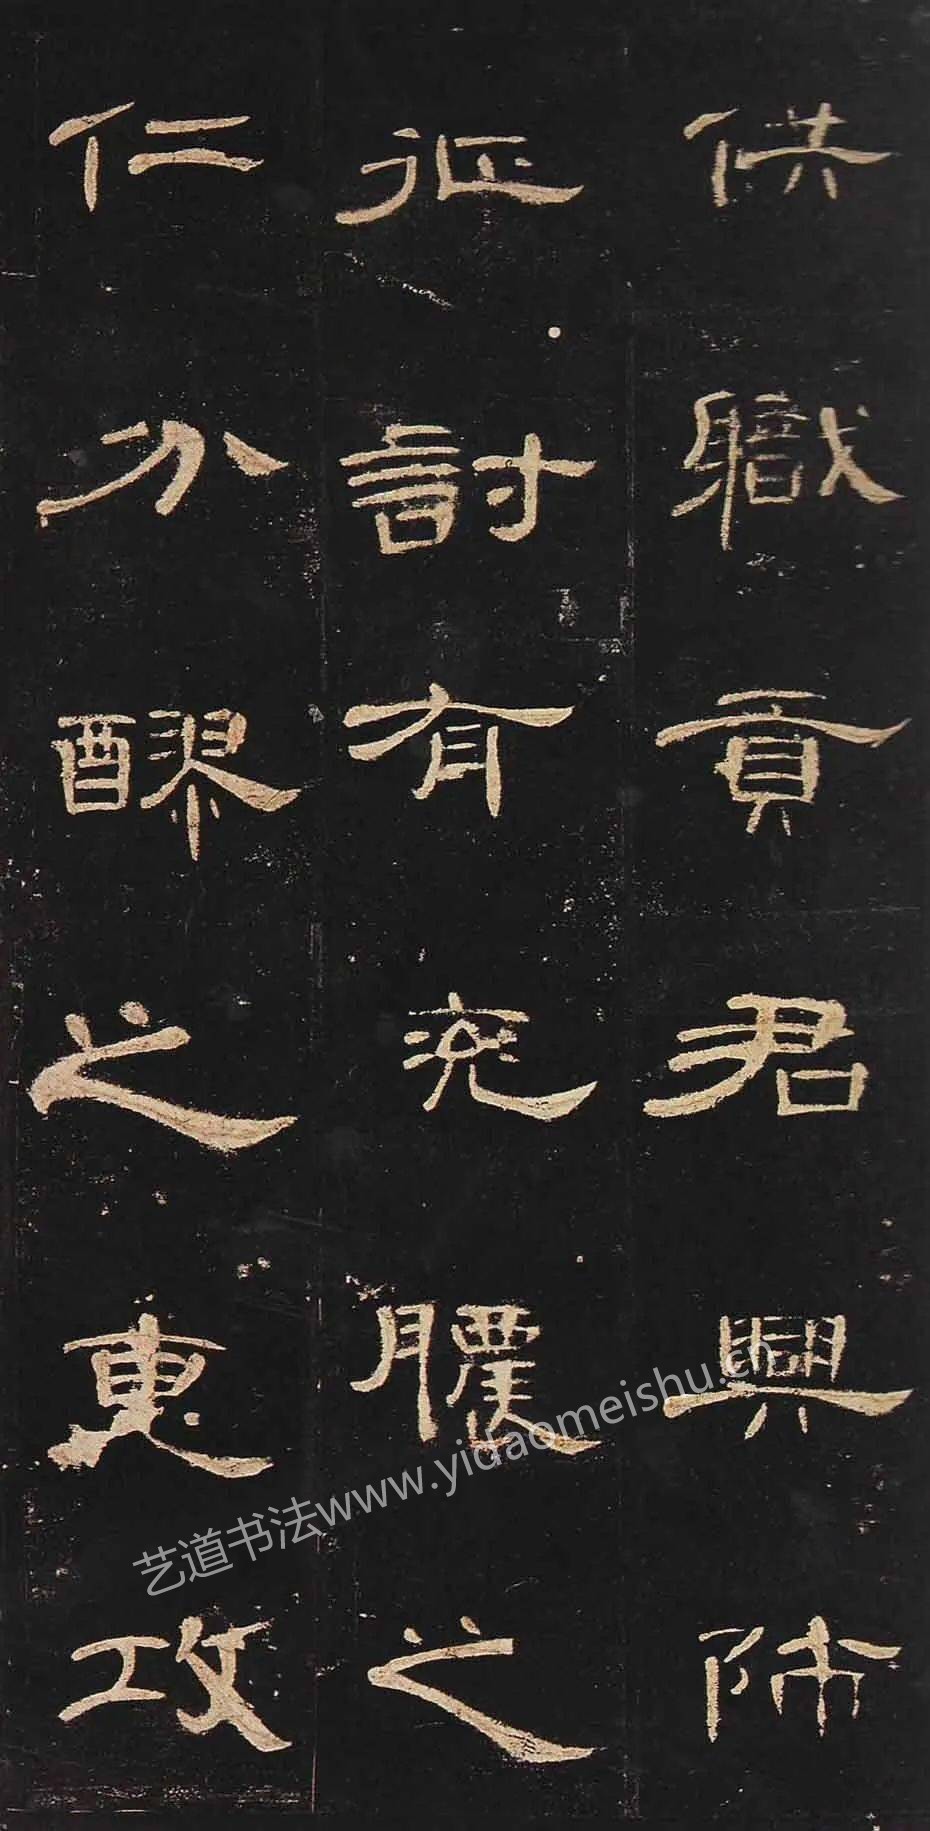 供職貢君興師
征討有兗膿之
仁分醪之惠攻
艺道书法www.yidaomeishu.cn